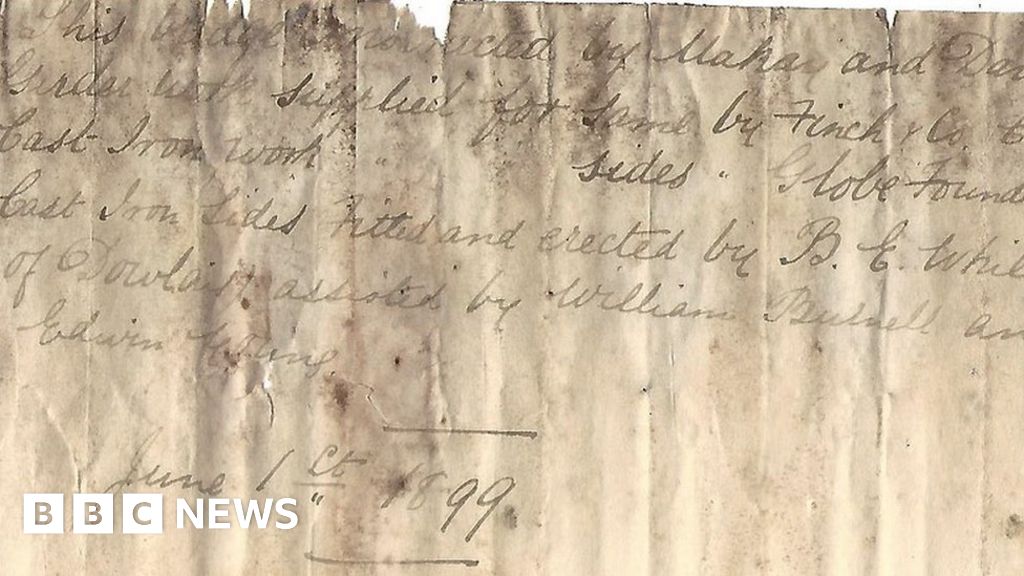 This bridge constructed by Mackay and Dav
Girder work supplied for same by Finch & Co. C
Cast Iron work " " sides " Globe Found
Cast Iron Sides Fitted and erected by B. E. Whil
of Dowlais assisted by William Bushell an
Edwin
June 1st 1899.
BBC NEWS